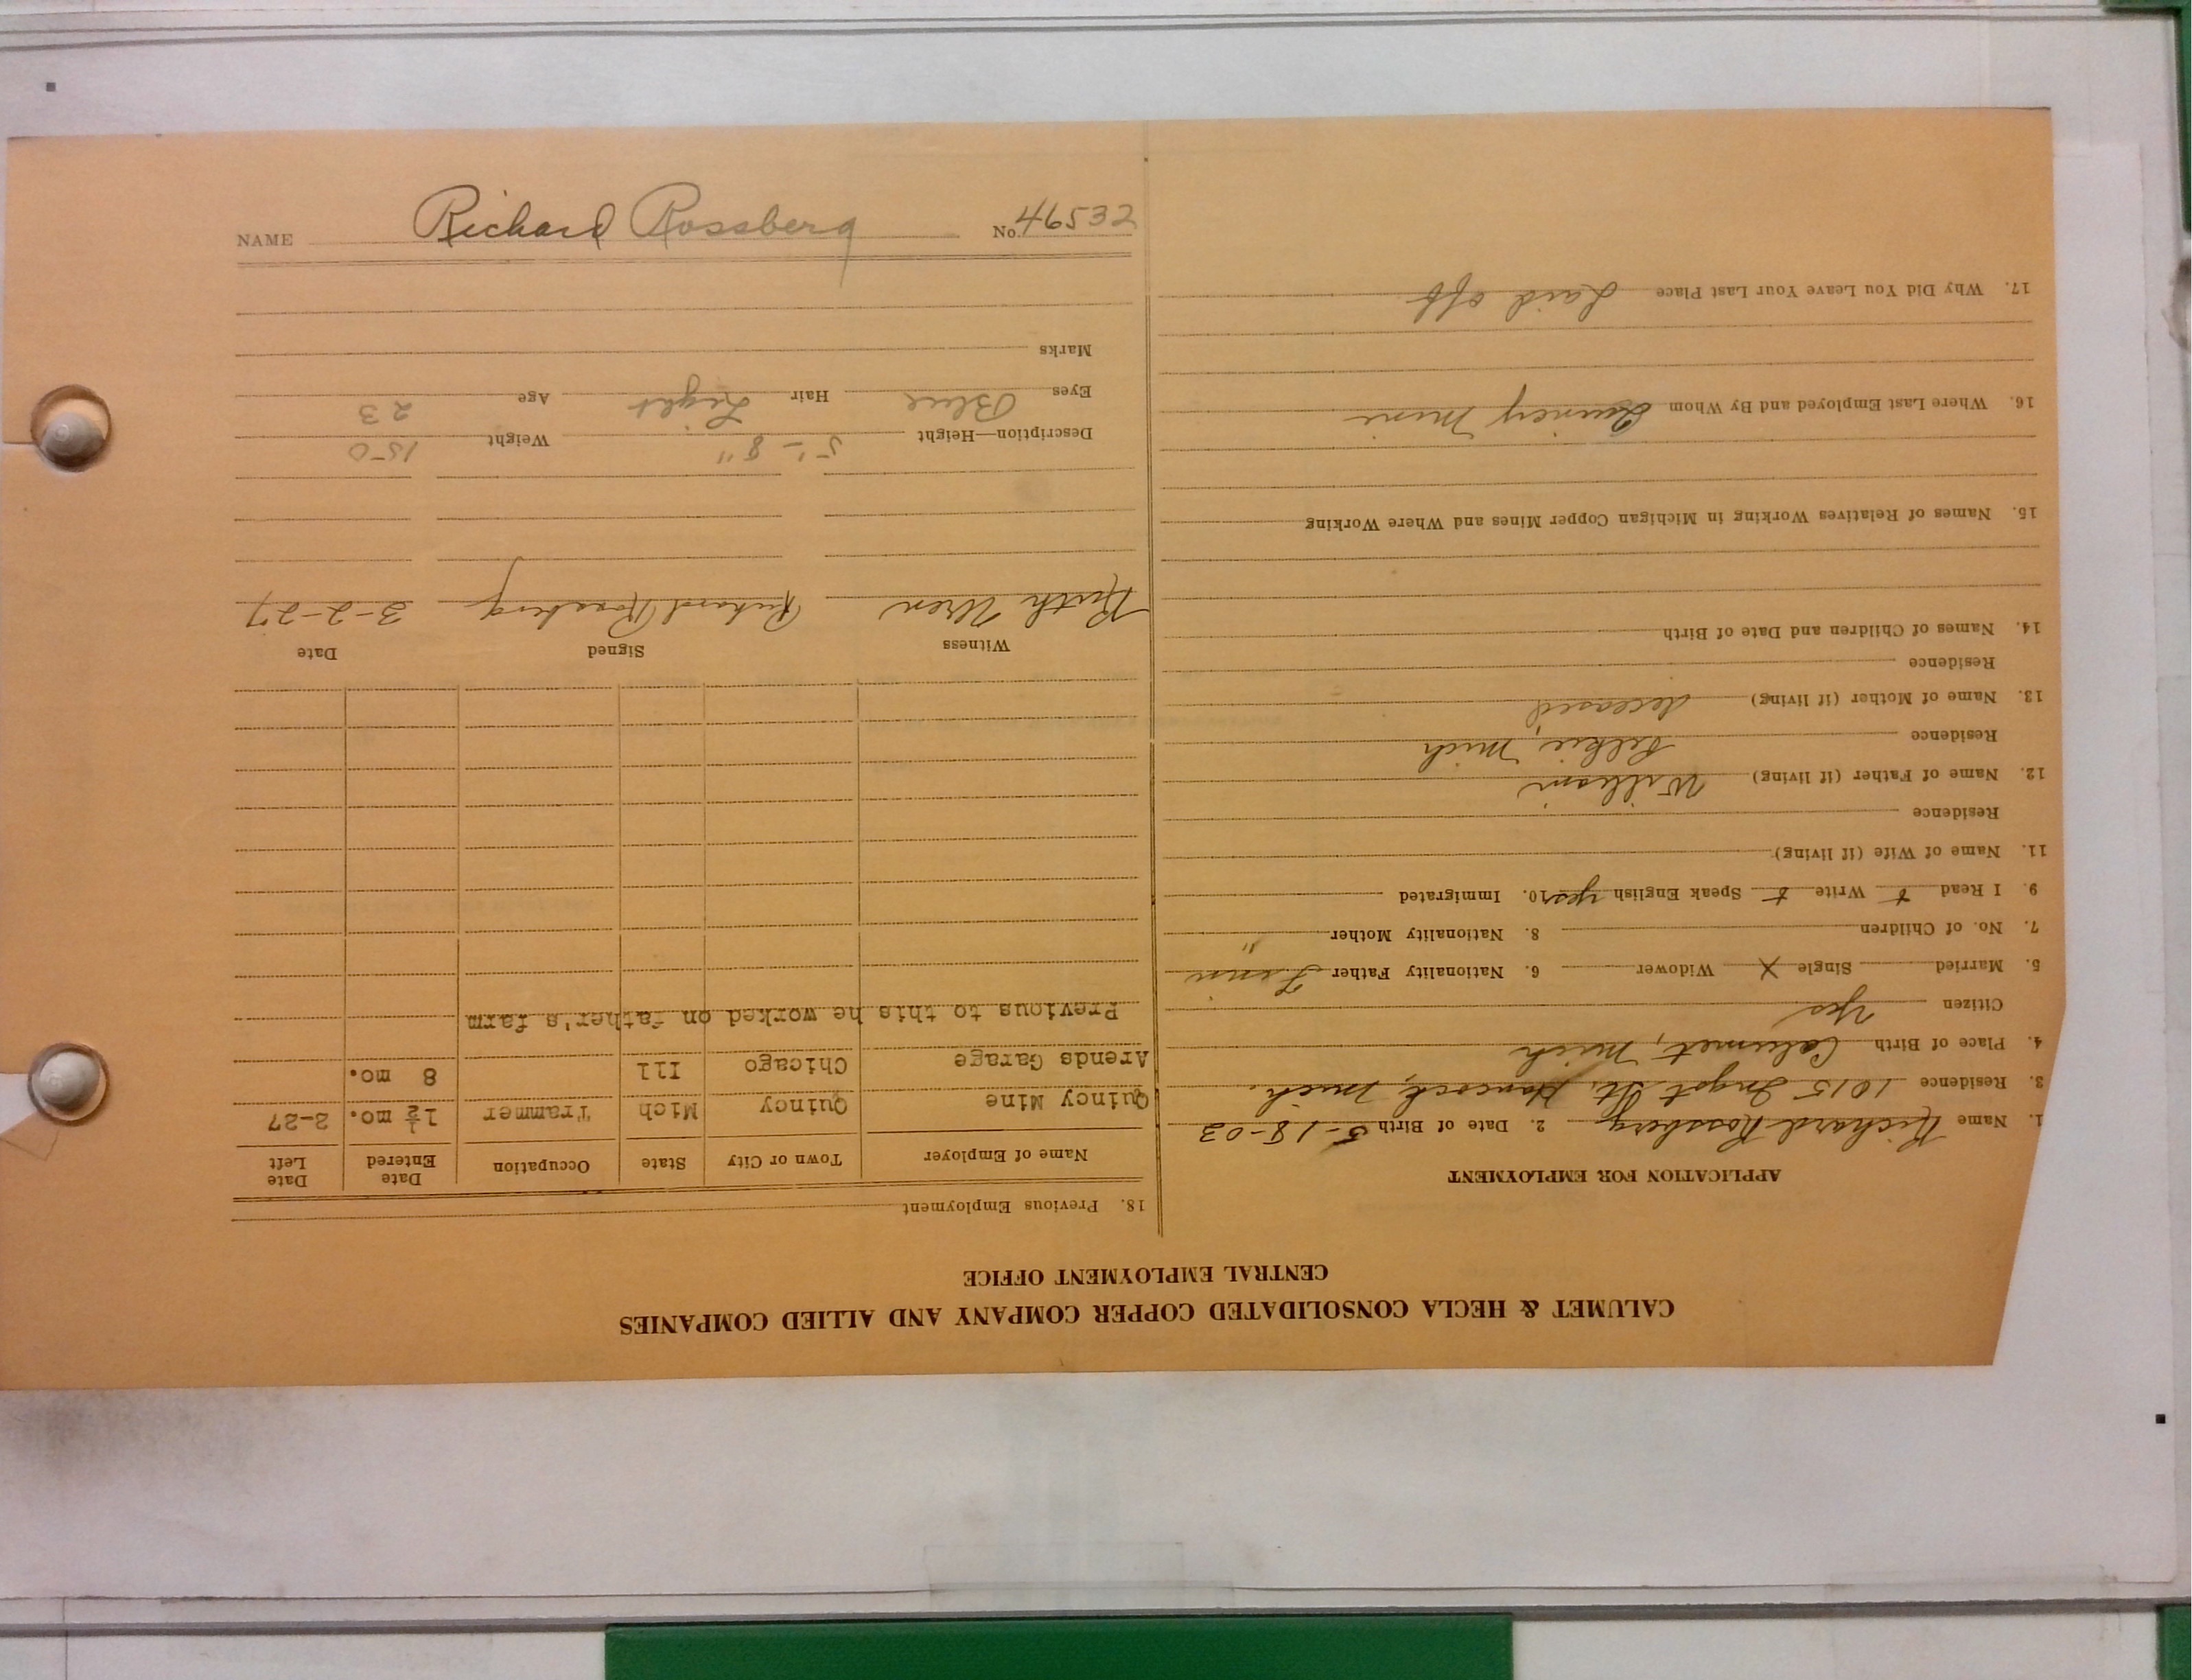 CALUMET & HECLA CONSOLIDATED COPPER COMPANY AND ALLIED COMPANIES
CENTRAL EMPLOYMENT OFFICE
APPLICATION FOR EMPLOYMENT
1. Name Richard Rossberg 2. Date of Birth 5-18-03
3. Residence 1015 Ingot St. Hancock, Mich.
4. Place of Birth Calumet, Mich
Citizen yes
5. Married Single X Widower 6. Nationality Father Finn
7. No. of Children 8. Nationality Mother "
9. I Read + Write + Speak English yes 10. Immigrated
11. Name of Wife (if living)
Residence
12. Name of Father (if living) William
Residence Pelkie, Mich
13. Name of Mother (if living) deceased
Residence
14. Names of Children and Date of Birth
15. Names of Relatives Working in Michigan Copper Mines and Where Working
16. Where Last Employed and By Whom Quincy Mine
17. Why Did You Leave Your Last Place Laid off
18. Previous Employment
Name of Employer Town or City State Occupation Date Entered Date Left
Quincy Mine Quincy Mich Trammer 1½ mo. 2-27
Arends Garage Chicago Ill 8 mo.
Previous to this he worked on father's farm
Witness Signed Date
Ruth Uren Richard Rossberg 3-2-27
Description—Height 5'-8" Weight 150
Eyes Blue Hair Light Age 23
Marks
NAME Richard Rossberg No. 46532